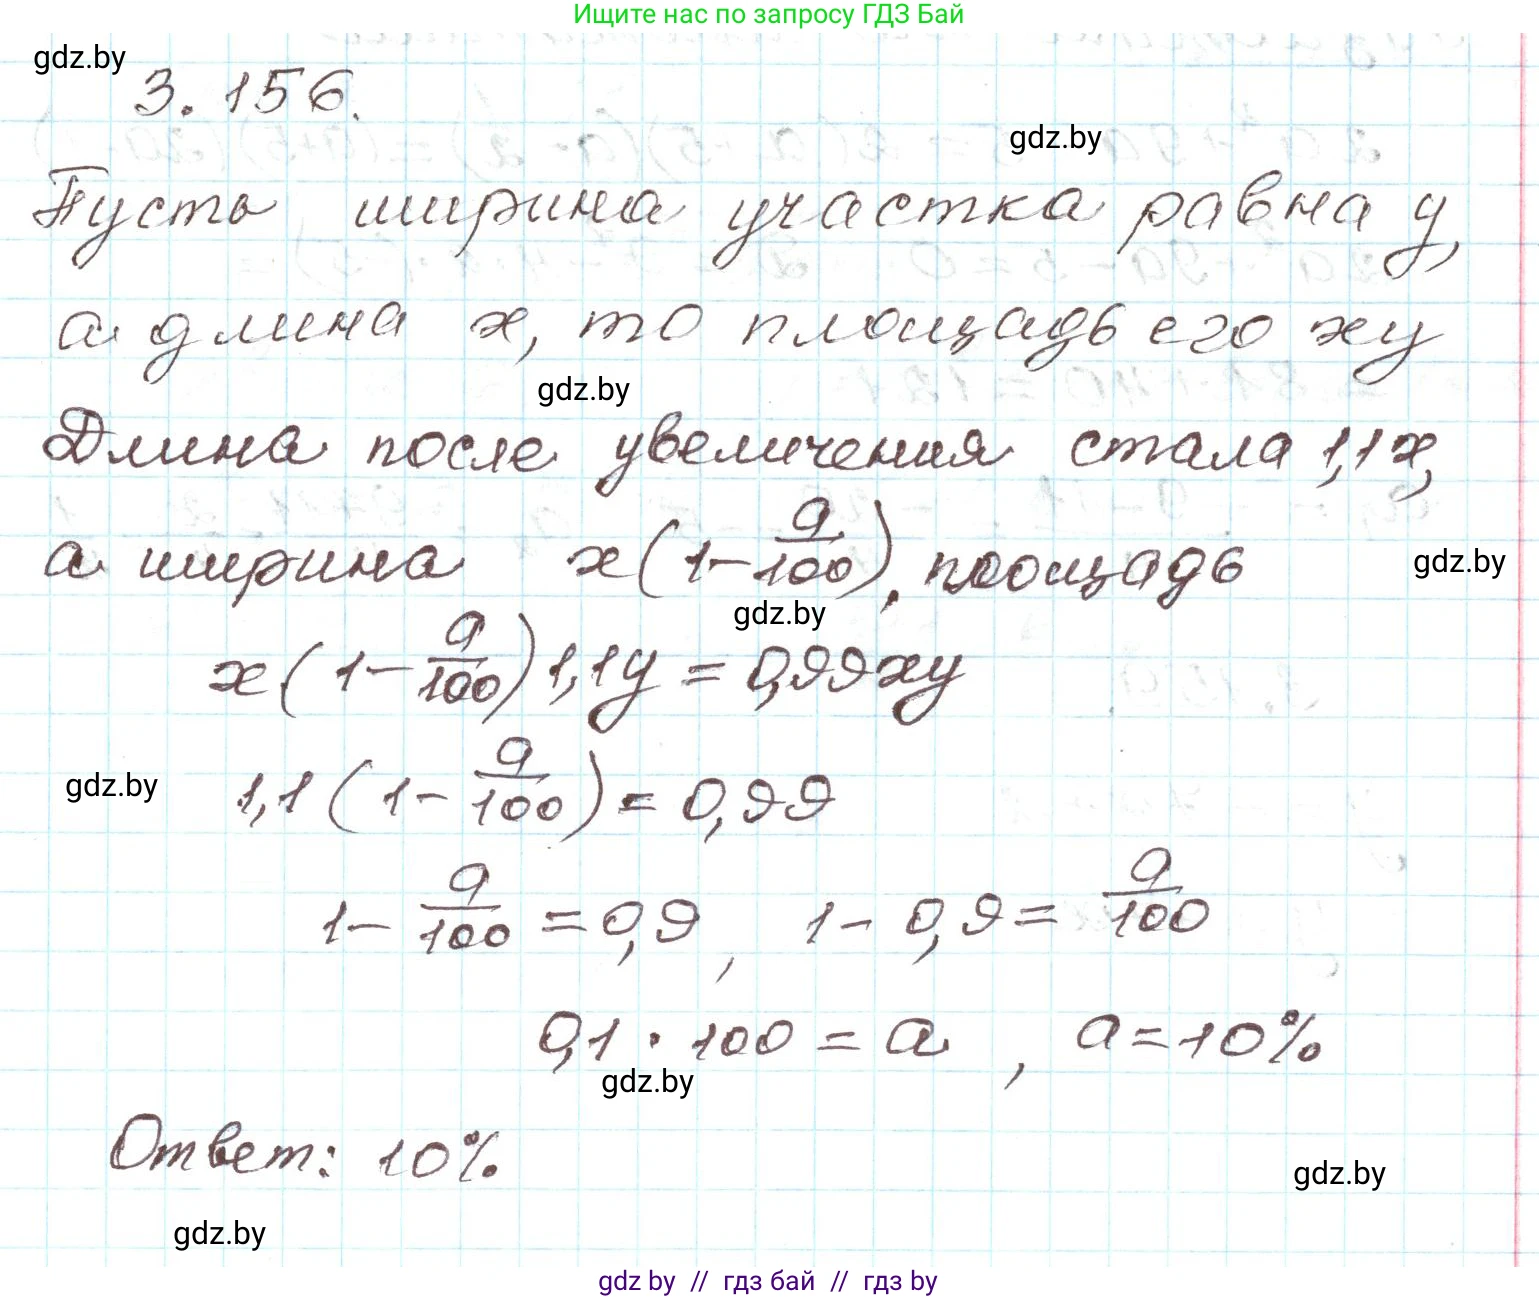 Ищите нас по запросу ГДЗ Бай
gdz.by
3.156.
gdz.by
Пусть ширина участка равна y,
а длина x, то площадь его xy
gdz.by
Длина после увеличения стала 1,1x,
а ширина x(1-a/100), площадь
gdz.by
gdz.by
x(1-a/100)1,1y=0,99xy
gdz.by
1,1(1-a/100)=0,99
1-a/100=0,9, 1-0,9=a/100
0,1·100=a, a=10%
gdz.by
Ответ: 10%
gdz.by
gdz.by
gdz by // гдз бай // гдз by